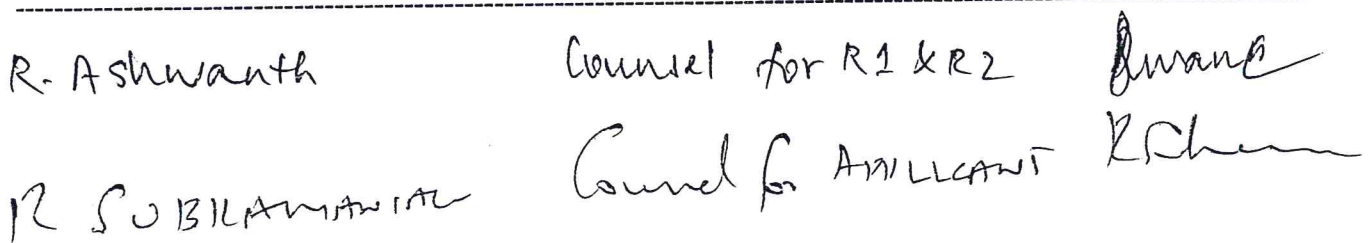 R. Ashwanth Counsel for R1 & R2
R SUBRAMANIAN Counsel for APPLICANT